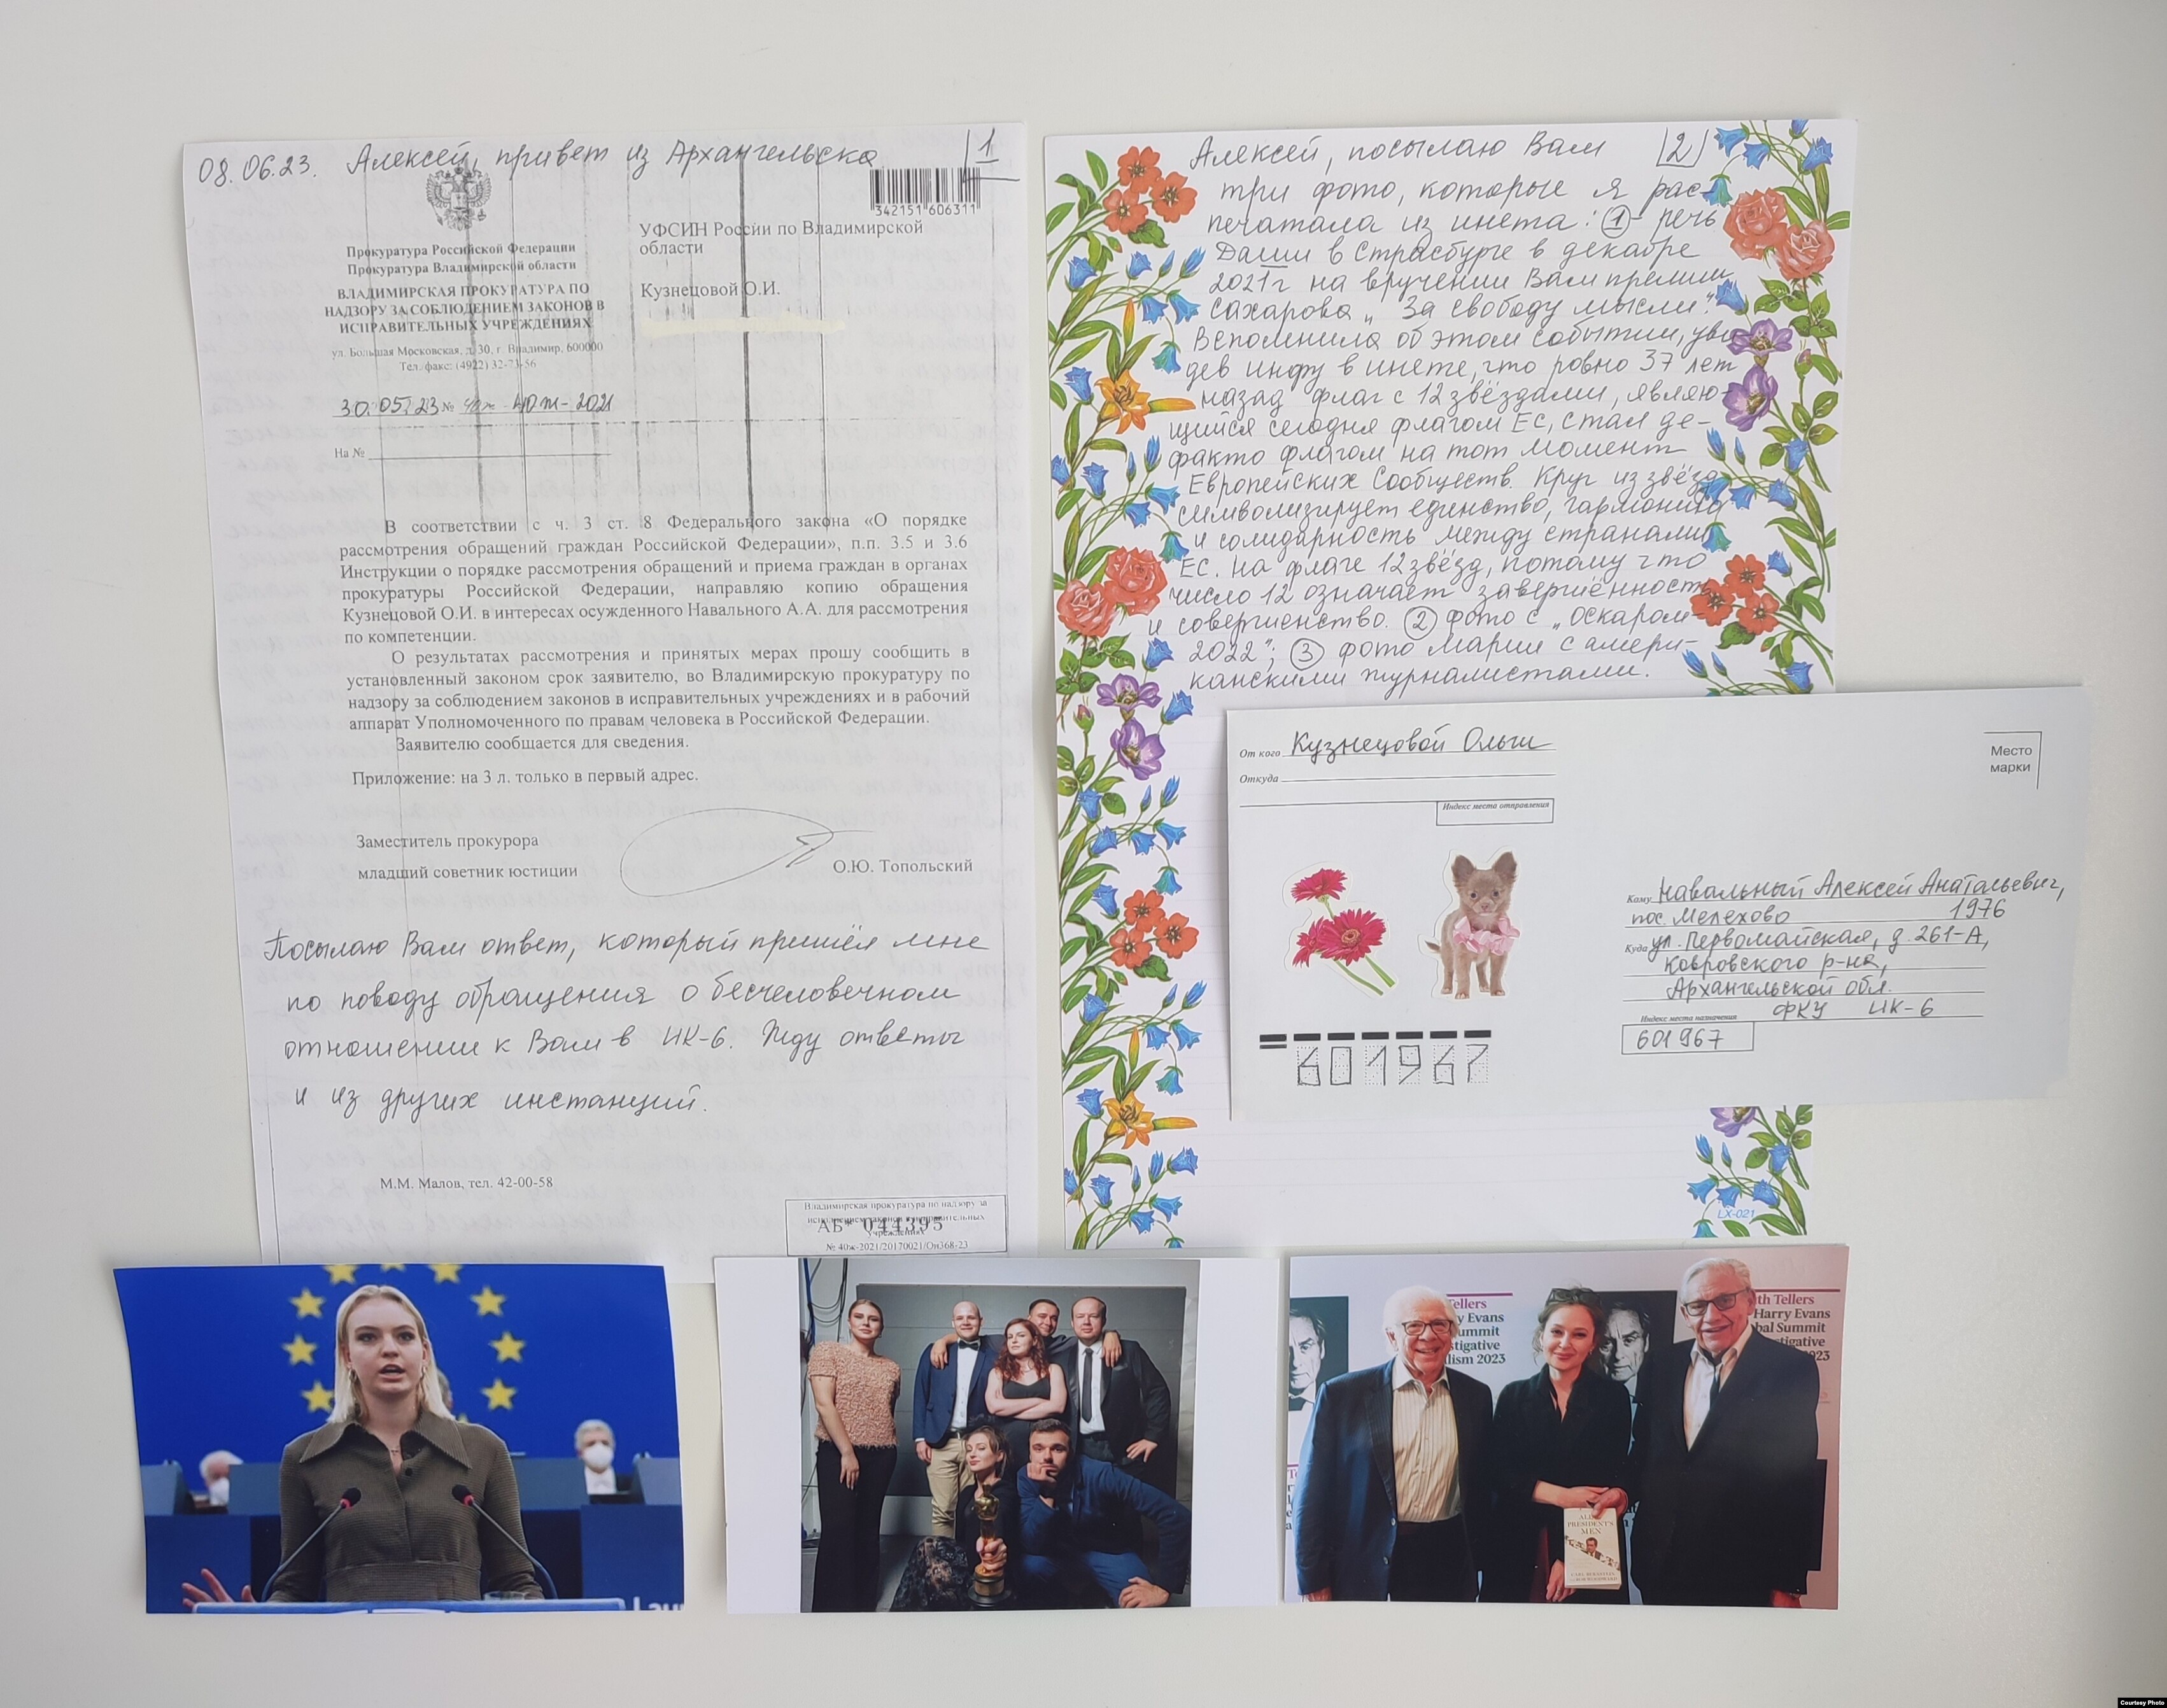 08.06.23. Алексей, привет из Архангельска
1
342151 606311
Прокуратура Российской Федерации
Прокуратура Владимирской области
ВЛАДИМИРСКАЯ ПРОКУРАТУРА ПО
НАДЗОРУ ЗА СОБЛЮДЕНИЕМ ЗАКОНОВ В
ИСПРАВИТЕЛЬНЫХ УЧРЕЖДЕНИЯХ
ул. Большая Московская, д. 30, г. Владимир, 600000
Тел. факс: (4922) 32-73-56
30.05.23 № 40ж-2021
На №
УФСИН России по Владимирской
области
Кузнецовой О.И.
В соответствии с ч. 3 ст. 8 Федерального закона «О порядке
рассмотрения обращений граждан Российской Федерации», п.п. 3.5 и 3.6
Инструкции о порядке рассмотрения обращений и приема граждан в органах
прокуратуры Российской Федерации, направляю копию обращения
Кузнецовой О.И. в интересах осужденного Навального А.А. для рассмотрения
по компетенции.
О результатах рассмотрения и принятых мерах прошу сообщить в
установленный законом срок заявителю, во Владимирскую прокуратуру по
надзору за соблюдением законов в исправительных учреждениях и в рабочий
аппарат Уполномоченного по правам человека в Российской Федерации.
Заявителю сообщается для сведения.
Приложение: на 3 л. только в первый адрес.
Заместитель прокурора
младший советник юстиции
О.Ю. Топольский
Посылаю Вам ответ, который пришёл мне
по поводу обращения о бесчеловечном
отношении к Вам в ИК-6. Жду ответы
и из других инстанций.
М.М. Малов, тел. 42-00-58
Владимирская прокуратура по надзору за
учреждениях
АБ* 044395
№ 40ж-2021/20170021/Он368-23
Алексей, посылаю Вам
2
три фото, которые я рас-
печатала из инета: 1 - речь
Даши в Страсбурге в декабре
2021г на вручении Вам премии
Сахарова „За свободу мысли".
Вспомнила об этом событии, уви
дев инфу в инете, что ровно 37 лет
назад флаг с 12 звёздами, являю-
щийся сегодня флагом ЕС, стал де-
факто флагом на тот момент
Европейских Сообществ. Круг из звёзд
символизирует единство, гармонию
и солидарность между странами
ЕС. На флаге 12 звёзд, потому что
число 12 означает завершённость
и совершенство. 2 фото с „Оскаром
2022"; 3 фото Марии с амери-
канскими журналистами.
LX-021
От кого Кузнецовой Ольги
Откуда
Индекс места отправления
Место
марки
Кому Навальный Алексей Анатальевич,
пос. Мелехово 1976
Куда ул. Первомайская, д. 261-А,
Ковровского р-на,
Архангельской обл.
ФКУ ИК-6
Индекс места назначения
601967
601967
Tellers
y Evans
ummit
stigative
lism 2023
th Tellers
Harry Evans
bal Summit
stigative
2023
ALL
PRESIDENT'S
MEN
CARL BERNSTEIN
BOB WOODWARD
Courtesy Photo